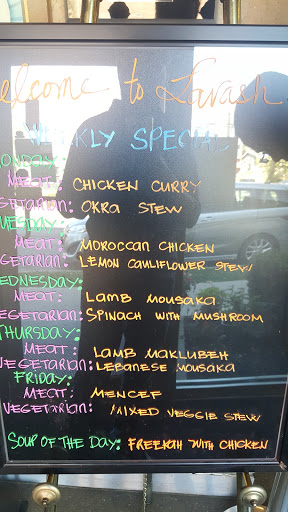 Welcome to Lavash
WEEKLY SPECIAL
MONDAY:
MEAT: CHICKEN CURRY
VEGETARIAN: OKRA STEW
TUESDAY:
MEAT: MOROCCAN CHICKEN
VEGETARIAN: LEMON CAULIFLOWER STEW
WEDNESDAY:
MEAT: LAMB MOUSAKA
VEGETARIAN: SPINACH WITH MUSHROOM
THURSDAY:
MEAT: LAMB MAKLUBEH
VEGETARIAN: LEBANESE MOUSAKA
FRIDAY:
MEAT: MENCEF
VEGETARIAN: MIXED VEGGIE STEW
SOUP OF THE DAY: FREEKAH WITH CHICKEN